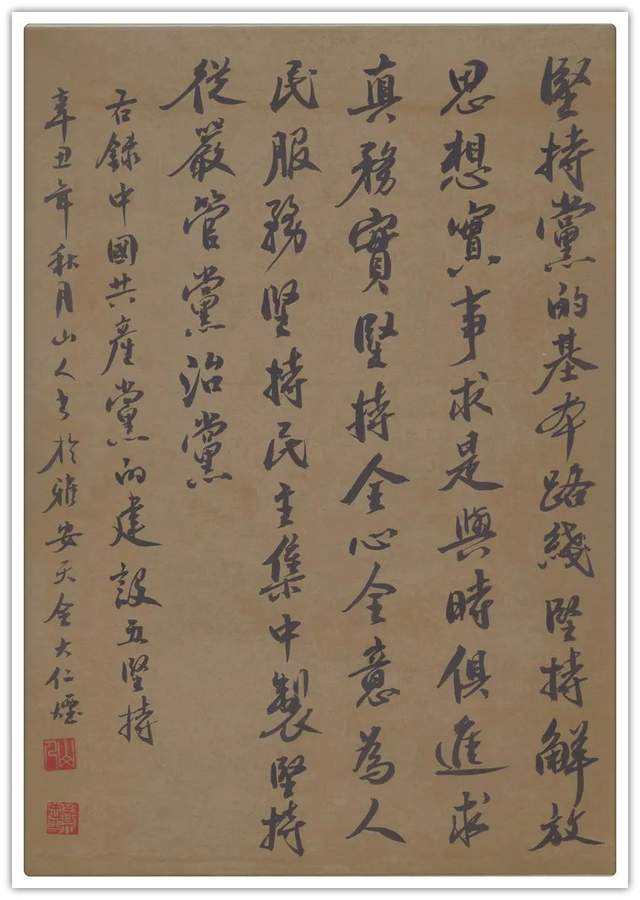 堅持黨的基本路綫堅持解放
思想實事求是與時俱進求
真務實堅持全心全意為人
民服務堅持民主集中製堅持
從嚴管黨治黨
右錄中國共產黨的建設五堅持
辛丑年秋月山人書於雅安天全大仁煙